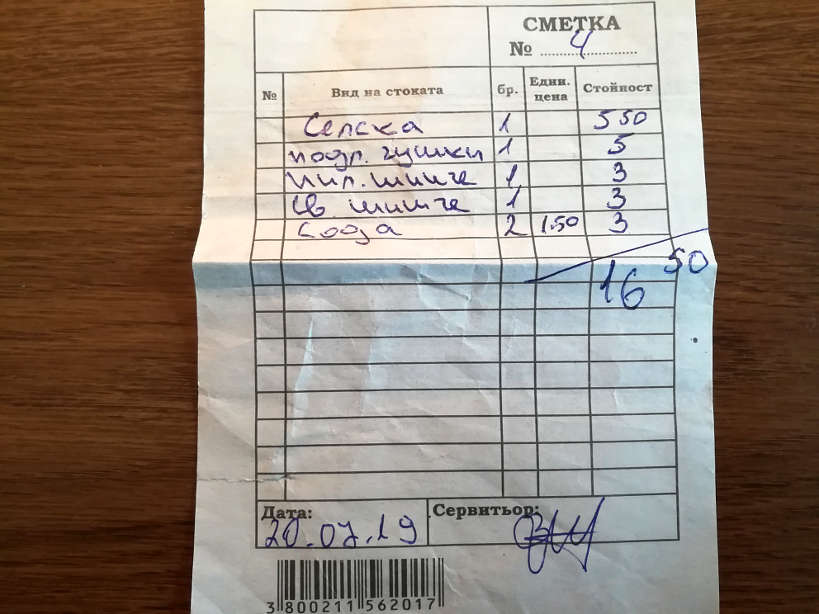 СМЕТКА
№ 4
№ Вид на стоката бр. Един. цена Стойност
Селска 1 5 50
подл. гушки 1 5
пил. шишче 1 3
св шишче 1 3
сода 2 1.50 3
16 50
Дата: Сервитьор:
20.07.19
3 800211 562017